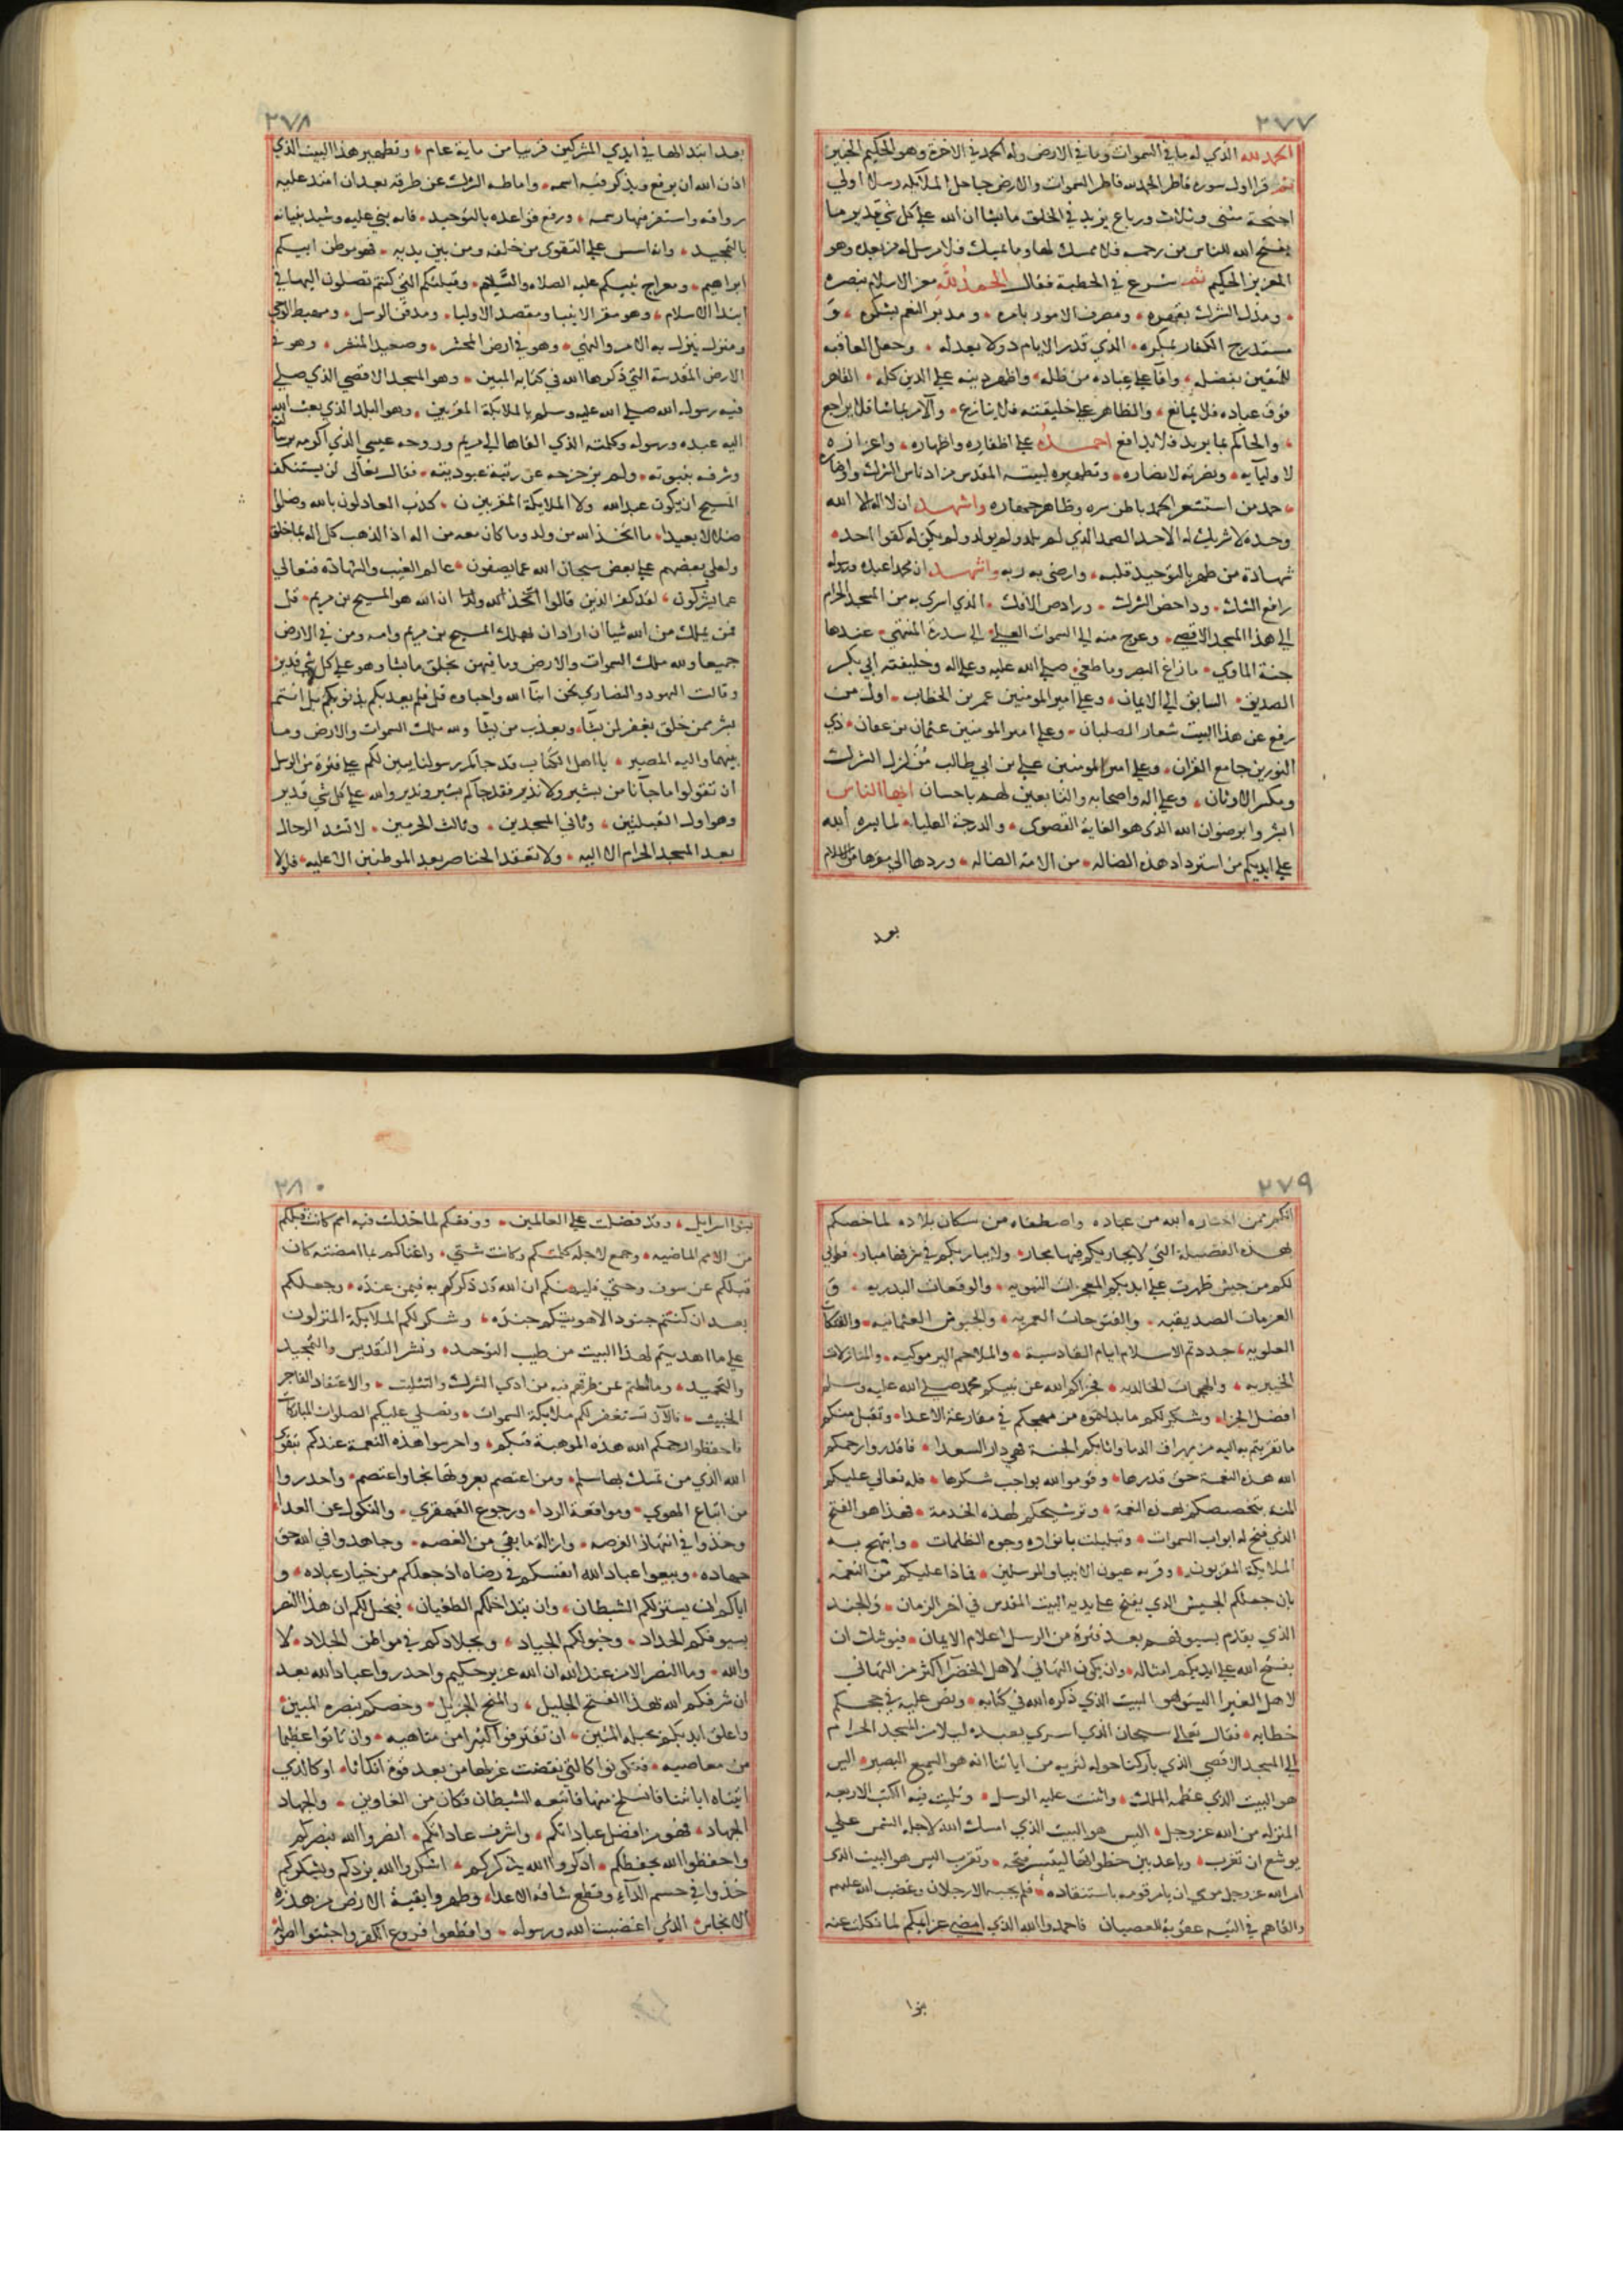 ٢٧٧
الحمد لله الذي له ما في السموات وما في الارض وله الحمد في الاخرة وهو الحكيم الخبير
ثم قرا اول سورة فاطر الحمد لله فاطر السموات والارض جاعل الملايكة رسلا اولي
اجنحة مثنى وثلاث ورباع يزيد في الخلق ما يشا ان الله على كل شي قدير ما
يفتح الله للناس من رحمة فلا ممسك لها وما يمسك فلا مرسل له من بعده وهو
العزيز الحكيم ثم شرع في الخطبة فقال الحمد لله معز الاسلام بنصره
ومذل الشرك بقهره ومصرف الامور بامره ومديم النعم بشكره و
مستدرج الكفار بمكره الذي قدر الايام دولا بعدله وجعل العاقبة
للمتقين بفضله وافآ على عباده من ظله واظهر دينه على الدين كله القاهر
فوق عباده فلا يمانع والظاهر على خليقته فلا ينازع والآمر بما يشا فلا يراجع
والحاكم بما يريد فلا يدافع احمده على اظفاره واظهاره واعزازه
لاوليايه ونصرته لانصاره وتطهيره لبيته المقدس من ادناس الشرك واوضاره
حمد من استشعر الحمد باطن سره وظاهر جهاره واشهد ان لا اله الا الله
وحده لا شريك له الاحد الصمد الذي لم يلد ولم يولد ولم يكن له كفوا احد
شهادة من طهر بالتوحيد قلبه وارضى به ربه واشهد ان محمدا عبده ورسوله
رافع الشك وداحض الشرك ورادص الافك الذي اسرى به من المسجد الحرام
الى هذا المسجد الاقصى وعرج منه الى السموات العلى الى سدرة المنتهى عندها
جنة الماوى ما زاغ البصر وما طغى صلى الله عليه وعلى اله وخليفته ابي بكر
الصديق السابق الى الايمان وعلى امير المومنين عمر بن الخطاب اول من
رفع عن هذا البيت شعار الصلبان وعلى امير المومنين عثمان بن عفان ذي
النورين جامع القران وعلى امير المومنين علي بن ابي طالب مزلزل الشرك
ومكسر الاوثان وعلى اله واصحابه والتابعين لهم باحسان ايها الناس
ابشروا برضوان الله الذي هو الغاية القصوى والدرجة العليا لما يسره الله
على ايديكم من استرداد هذه الضالة من الامة الضالة وردها الى مقرها من الاسلام
بعد
٢٧٨
بعد ابتذالها في ايدي المشركين قريبا من ماية عام وتطهير هذا البيت الذي
اذن الله ان يرفع ويذكر فيه اسمه واماطة الشرك عن طرقه بعد ان امتد عليه
رواقه واستقر فيها رسمه ورفع قواعده بالتوحيد فانه بني عليه وشيد بنيانه
بالتمجيد وانه اسس على التقوى من خلفه ومن بين يديه فهو موطن ابيكم
ابراهيم ومعراج نبيكم عليه الصلاة والسلام وقبلتكم التي كنتم تصلون اليها في
ابتدا الاسلام وهو مقر الانبيا ومقصد الاوليا ومدفن الرسل ومهبط الوحي
ومنزل ينزل به الامر والنهي وهو في ارض المحشر وصعيد المنشر وهو في
الارض المقدسة التي ذكرها الله في كتابه المبين وهو المسجد الاقصى الذي صلى
فيه رسول الله صلى الله عليه وسلم بالملايكة المقربين وهو البلد الذي بعث الله
اليه عبده ورسوله وكلمته التي القاها الى مريم وروحه عيسى الذي اكرمه برسالته
وشرفه بنبوته ولم يزحزحه عن رتبة عبوديته فقال تعالى لن يستنكف
المسيح ان يكون عبدا لله ولا الملايكة المقربون كذب العادلون بالله وضلوا
ضلالا بعيدا ما اتخذ الله من ولد وما كان معه من اله اذا لذهب كل اله بما خلق
ولعلى بعضهم على بعض سبحان الله عما يصفون عالم الغيب والشهادة فتعالى
عما يشركون لقد كفر الذين قالوا ان الله هو المسيح بن مريم قل
فمن يملك من الله شيا ان اراد ان يهلك المسيح بن مريم وامه ومن في الارض
جميعا ولله ملك السموات والارض وما بينهن يخلق ما يشا وهو على كل شي قدير
وقالت اليهود والنصارى نحن ابنآ الله واحباوه قل فلم يعذبكم بذنوبكم بل انتم
بشر ممن خلق يغفر لمن يشآ ويعذب من يشآ ولله ملك السموات والارض وما
بينهما واليه المصير يا اهل الكتاب قد جاكم رسولنا يبين لكم على فترة من الرسل
ان تقولوا ما جآنا من بشير ولا نذير فقد جاكم بشير ونذير والله على كل شي قدير
وهو اول القبلتين وثاني المسجدين وثالث الحرمين لا تشد الرحال
بعد المسجد الحرام الا اليه ولا تعقد الخناصر بعد الموطنين الا عليه فلولا
٢٧٩
انكم ممن اختاره الله من عباده واصطفاه من سكان بلاده لما خصكم
بهذه الفضيلة التي لا يجاريكم فيها مجار ولا يباريكم في شرفها مبار فطوبى
لكم من جيش ظهرت على ايديكم المعجزات النبويه والوقعات البدريه و
العزمات الصديقيه والفتوحات العمريه والجيوش العثمانيه والفتكات
العلويه جددتم الاسلام ايام القادسية والملاحم اليرموكيه والمنازلات
الخيبريه والهجمات الخالديه فجزاكم الله عن نبيكم محمد صلى الله عليه وسلم
افضل الجزا وشكر لكم ما بذلتموه من مهجكم في مقارعة الاعدا وتقبل منكم
ما تقربتم به اليه من مهراق الدما واثابكم الجنة فهي دار السعدا فاقدروا رحمكم
الله هذه النعمة حق قدرها وقوموا لله بواجب شكرها فله تعالى عليكم
المنه بتخصيصكم بهذه النعمة وترشيحكم لهذه الخدمة فهذا هو الفتح
الذي فتح له ابواب السموات وتبلجت بانواره وجوه الظلمات وابتهج به
الملايكة المقربون وقر به عيون الانبيا والمرسلين فماذا عليكم من النعمة
بان جعلكم الجيش الذي يفتح على يديه البيت المقدس في آخر الزمان والجند
الذي يقدم بسيوفهم بعد فترة من الرسل اعلام الايمان فيوشك ان
يفتح الله على ايديكم امثاله وان يكون التهاني لاهل الخضرآ اكثر من التهاني
لاهل الغبرا اليس هو البيت الذي ذكره الله في كتابه ونص عليه في محكم
خطابه فقال تعالى سبحان الذي اسرى بعبده ليلا من المسجد الحرام
الى المسجد الاقصى الذي باركنا حوله لنريه من اياتنا انه هو السميع البصير اليس
هو البيت الذي عظمته الملك واثنت عليه الرسل وتليت فيه الكتب الاربعه
المنزله من الله عز وجل اليس هو البيت الذي امسك الله لاجله الشمس على
يوشع ان تغرب وباعد بين خطواتها ليتيسر فتحه وتقرب اليس هو البيت الذي
امر الله عز وجل موسى ان يامر قومه باستنقاذه فلم يجبه الا رجلان وغضب الله عليهم
والقاهم في التيه عقوبة للعصيان فاحمدوا الله الذي امضى عزايمكم لما نكلت عنه
بنوا
٢٨٠
بنوا اسرايل وقد فضلت على العالمين ووفقكم لما خذلت فيه امم كانت قبلكم
من الامم الماضيه وجمع لاجله كلمتكم وكانت شتى واغناكم بما امضته كان
قبلكم عن سوف وحتى فليهنكم ان الله قد ذكركم به فيمن عنده وجعلكم
بعد ان كنتم جنودا لاهويتكم جنده وشكر لكم الملايكة المنزلون
على ما اهديتم لهذا البيت من طيب التوحيد ونشر التقديس والتمجيد
والتحميد وما امطتم عن طرقهم فيه من اذى الشرك والتثليث والاعتقاد الفاجر
الخبيث فالآن تستغفر لكم ملايكة السموات وتصلي عليكم الصلوات المباركات
فاحفظوا رحمكم الله هذه الموهبة فيكم واحرسوا هذه النعمة عندكم بتقوى
الله الذي من تمسك بها سلم ومن اعتصم بعروتها نجا واعتصم واحذروا
من اتباع الهوى وموافقة الردا ورجوع القهقرى والنكول عن العدا
وخذوا في انتهاز الفرصه وازالة ما بقي من الغصه وجاهدوا في الله حق
جهاده وبيعوا عباد الله انفسكم في رضاه اذ جعلكم من خيار عباده و
اياكم ان يستزلكم الشيطان وان يتداخلكم الطغيان فيخيل لكم ان هذا النصر
بسيوفكم الحداد وخيولكم الجياد وبجلادكم في مواطن الجلاد لا
والله وما النصر الا من عند الله ان الله عزيز حكيم واحذروا عباد الله بعد
ان شرفكم الله بهذا الفتح الجليل والمنح الجزيل وخصكم بنصره المبين
واعلق ايديكم بحبله المتين ان تقترفوا كثيرا من مناهيه وان تاتوا عظيما
من معاصيه فتكونوا كالتي نقضت غزلها من بعد قوة انكاثا او كالذي
اتيناه اياتنا فانسلخ منها فاتبعه الشيطان فكان من الغاوين والجهاد
الجهاد فهو من افضل عباداتكم واشرف عاداتكم انصروا الله ينصركم
واحفظوا الله يحفظكم اذكروا الله يذكركم اشكروا الله يزدكم ويشكركم
خذوا في حسم الدآء وقطع شافة الاعدا وطهروا بقية الارض من هذه
الانجاس الذي اغضبت الله ورسوله واقطعوا فروع الكفر واجتثوا اصوله